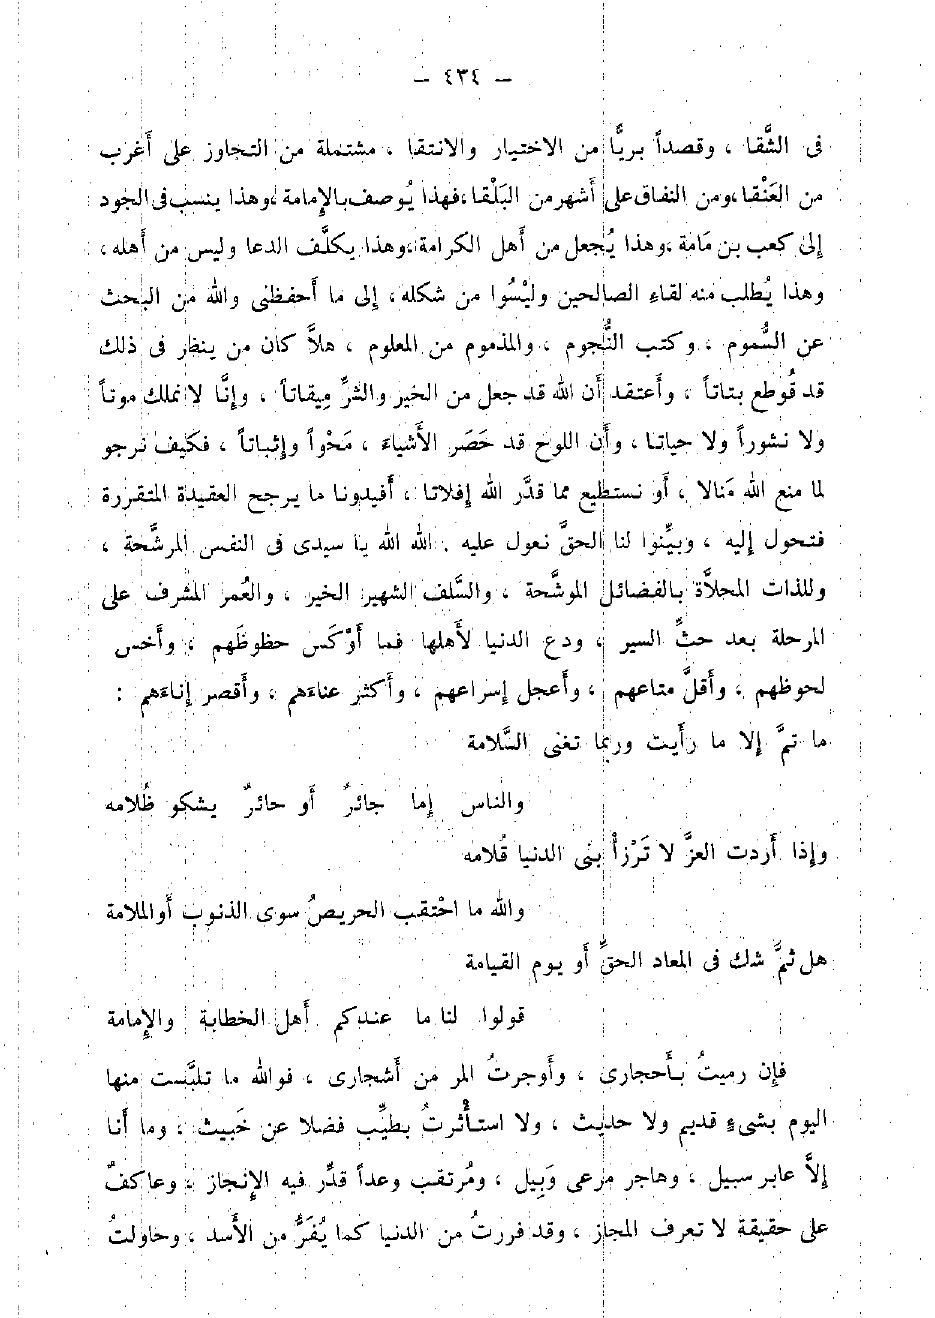 — ٤٣٤ —
فى الشَّقا ، وقصداً بريًّا من الاختيار والانتقا ، مشتملة من التجاوز على أَغرب
من العَنْقا ،ومن النفاق على أَشهر من البَلْقا ،فهذا يُوصف بالإِمامة ،وهذا ينسب فى الجود
إِلى كعب بن مَامة ،وهذا يُجعل من أَهل الكرامة ،وهذا يكلَّف الدعا وليس من أَهله ،
وهذا يُطلب منه لقاء الصالحين وليْسُوا من شكله ، إِلى ما أَحفظنى والله من البحث
عن السُّموم ، وكتب النُّجوم ، والمذموم من المعلوم ، هلاَّ كان من ينظر فى ذلك
قد قُوطع بتاتاً ، وأَعتقد أَن الله قد جعل من الخير والشرِّ مِيقاتاً ، وإِنَّا لا نملك موتاً
ولا نشوراً ولا حياتا ، وأَن اللوح قد حَصَر الأَشياء ، مَحْواً وإِثباتاً ، فكيف نرجو
لما منع الله مَنالا ، أَو نستطيع مما قدَّر الله إِفلاتا ، أَفيدونا ما يرجح العقيدة المتقررة
فنتحول إِليه ، وبيِّنوا لنا الحقَّ نعول عليه . الله الله يا سيدى فى النفس المرشَّحة ،
وللذات المحلاَّة بالفضائل الموشَّحة ، والسَّلف الشهير الخير ، والعُمر المشرف على
المرحلة بعد حثِّ السير ، ودع الدنيا لأَهلها فما أَوْكَس حظوظَهم ، وأَخس
لحوظهم ، وأَقلَّ متاعهم ، وأَعجل إِسراعهم ، وأَكثر عناءَهم ، وأَقصر إِناءَهم :
ما تمَّ إِلا ما رأَيت وربما تغنى السَّلامة
والناس إِما جائرٌ أَو حائرٌ يشكو ظُلامه
وإِذا أَردت العزَّ لا تَرْزأْ بنى الدنيا قُلامه
والله ما احْتقب الحريصُ سوى الذنوب أَو الملامة
هل ثمَّ شك فى المعاد الحقِّ أَو يوم القيامة
قولوا لنا ما عندكم أَهل الخطابة والإِمامة
فإِن رميتُ بأَحجارى ، وأَوجرتُ المر من أَشجارى ، فوالله ما تلبَّست منها
اليوم بشىءٍ قديم ولا حديث ، ولا استأْثرتُ بطيِّب فضلا عن خَبيث ، وما أَنا
إِلاَّ عابر سبيل ، وهاجر مرعى وَبِيل ، ومُرتقب وعداً قدِّر فيه الإِنجاز ، وعاكفٌ
على حقيقة لا تعرف المجاز ، وقد فررتُ من الدنيا كما يُفَرُّ من الأَسد ، وحاولتُ